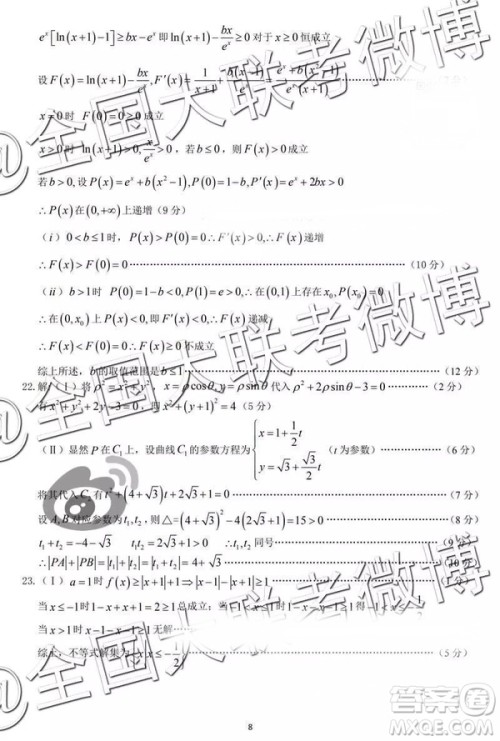 e^x[ln(x+1)-1]≥bx-e^x 即 ln(x+1)-bx/e^x≥0 对于 x≥0 恒成立
设 F(x)=ln(x+1)-bx/e^x, F'(x)=1/(x+1)+b(x-1)/e^x=
x=0 时 F(0)=0≥0 成立
x>0 时 ln(x+1)>0, x/e^x>0, 若 b≤0, 则 F(x)≥0 成立
若 b>0, 设 P(x)=e^x+b(x²-1), P(0)=1-b, P'(x)=e^x+2bx>0
∴P(x) 在 (0,+∞) 上递增 (9 分)
(i) 0<b≤1 时, P(x)>P(0)≥0 ∴F'(x)>0, ∴F(x) 递增
∴F(x)>F(0)=0 (10 分)
(ii) b>1 时 P(0)=1-b<0, P(1)=e>0, ∴在 (0,1) 上存在 x₀, P(x₀)=0
∴在 (0,x₀) 上 P(x)<0 ∴F'(x)<0, ∴F(x) 递减
∴F(x)<F(0)=0 ∴F(x)≥0 不成立
综上所述, b 的取值范围是 b≤1 (12 分)
22.解: (Ⅰ) 将 ρ²=x²+y², x=ρcosθ, y=ρsinθ 代入 ρ²+2ρsinθ-3=0 (2 分)
得 x²+y²+2y-3=0, 即 x²+(y+1)²=4 (5 分)
(Ⅱ) 显然 P 在 C₁ 上, 设曲线 C₁ 的参数方程为 { x=1+1/2 t, y=√3+√3/2 t (t 为参数) (6 分)
将其代入 C₂ 有 t²+(4+√3)t+2√3+1=0 (7 分)
设 A,B 对应参数为 t₁,t₂, 则 △=(4+√3)²-4(2√3+1)=15>0 (8 分)
t₁+t₂=-4-√3 t₁t₂=2√3+1>0 ∴t₁,t₂ 同号 (9 分)
∴|PA|+|PB|=|t₁|+|t₂|=|t₁+t₂|=4+√3 (10 分)
23. (Ⅰ) a=1 时 f(x)≥|x+1|+1⇒|x-1|-|x+1|≥1
当 x≤-1 时 1-x+x+1=2≥1 总成立; 当 -1<x≤1 时 1-x-x-1≥1
当 x>1 时 x-1-x-1≥1 无解
综上, 不等式解集为 {x|x≤-1/2} (5 分)
8
@全国大联考微博
@全国大联考微博
@全国大联考微博
答案圈
MXQE.COM